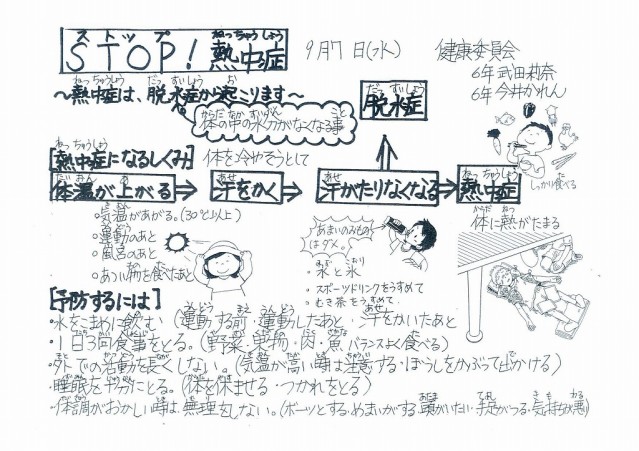 STOP! 熱中症
9月7日(水)
健康委員会
6年 武田莉奈
6年 今井かれん
～熱中症は、脱水症から起こります～
体の中の水分がなくなる事
脱水症
[熱中症になるしくみ]
体を冷やそうとして
体温が上がる⇒汗をかく⇒汗がたりなくなる⇒熱中症
・気温があがる。(30℃以上)
・運動のあと
・風呂のあと
・あつい物を食べたあと
あまいのみものはダメ。
・水と氷
・スポーツドリンクをうすめて
・むぎ茶をうすめて
しっかり食べる
体に熱がたまる
[予防するには]
・水をこまめに飲む (運動する前・運動したあと・汗をかいたあと
・1日3回食事をとる。(野菜・果物・肉・魚バランスよく食べる)
・外での活動を長くしない。(気温が高い時は注意する・ぼうしをかぶって出かける)
・睡眠を十分にとる。(体を休ませる・つかれをとる)
・体調がおかしい時は、無理をしない。(ボーッとする・めまいがする・頭がいたい・手足がつる・気持ちが悪い)